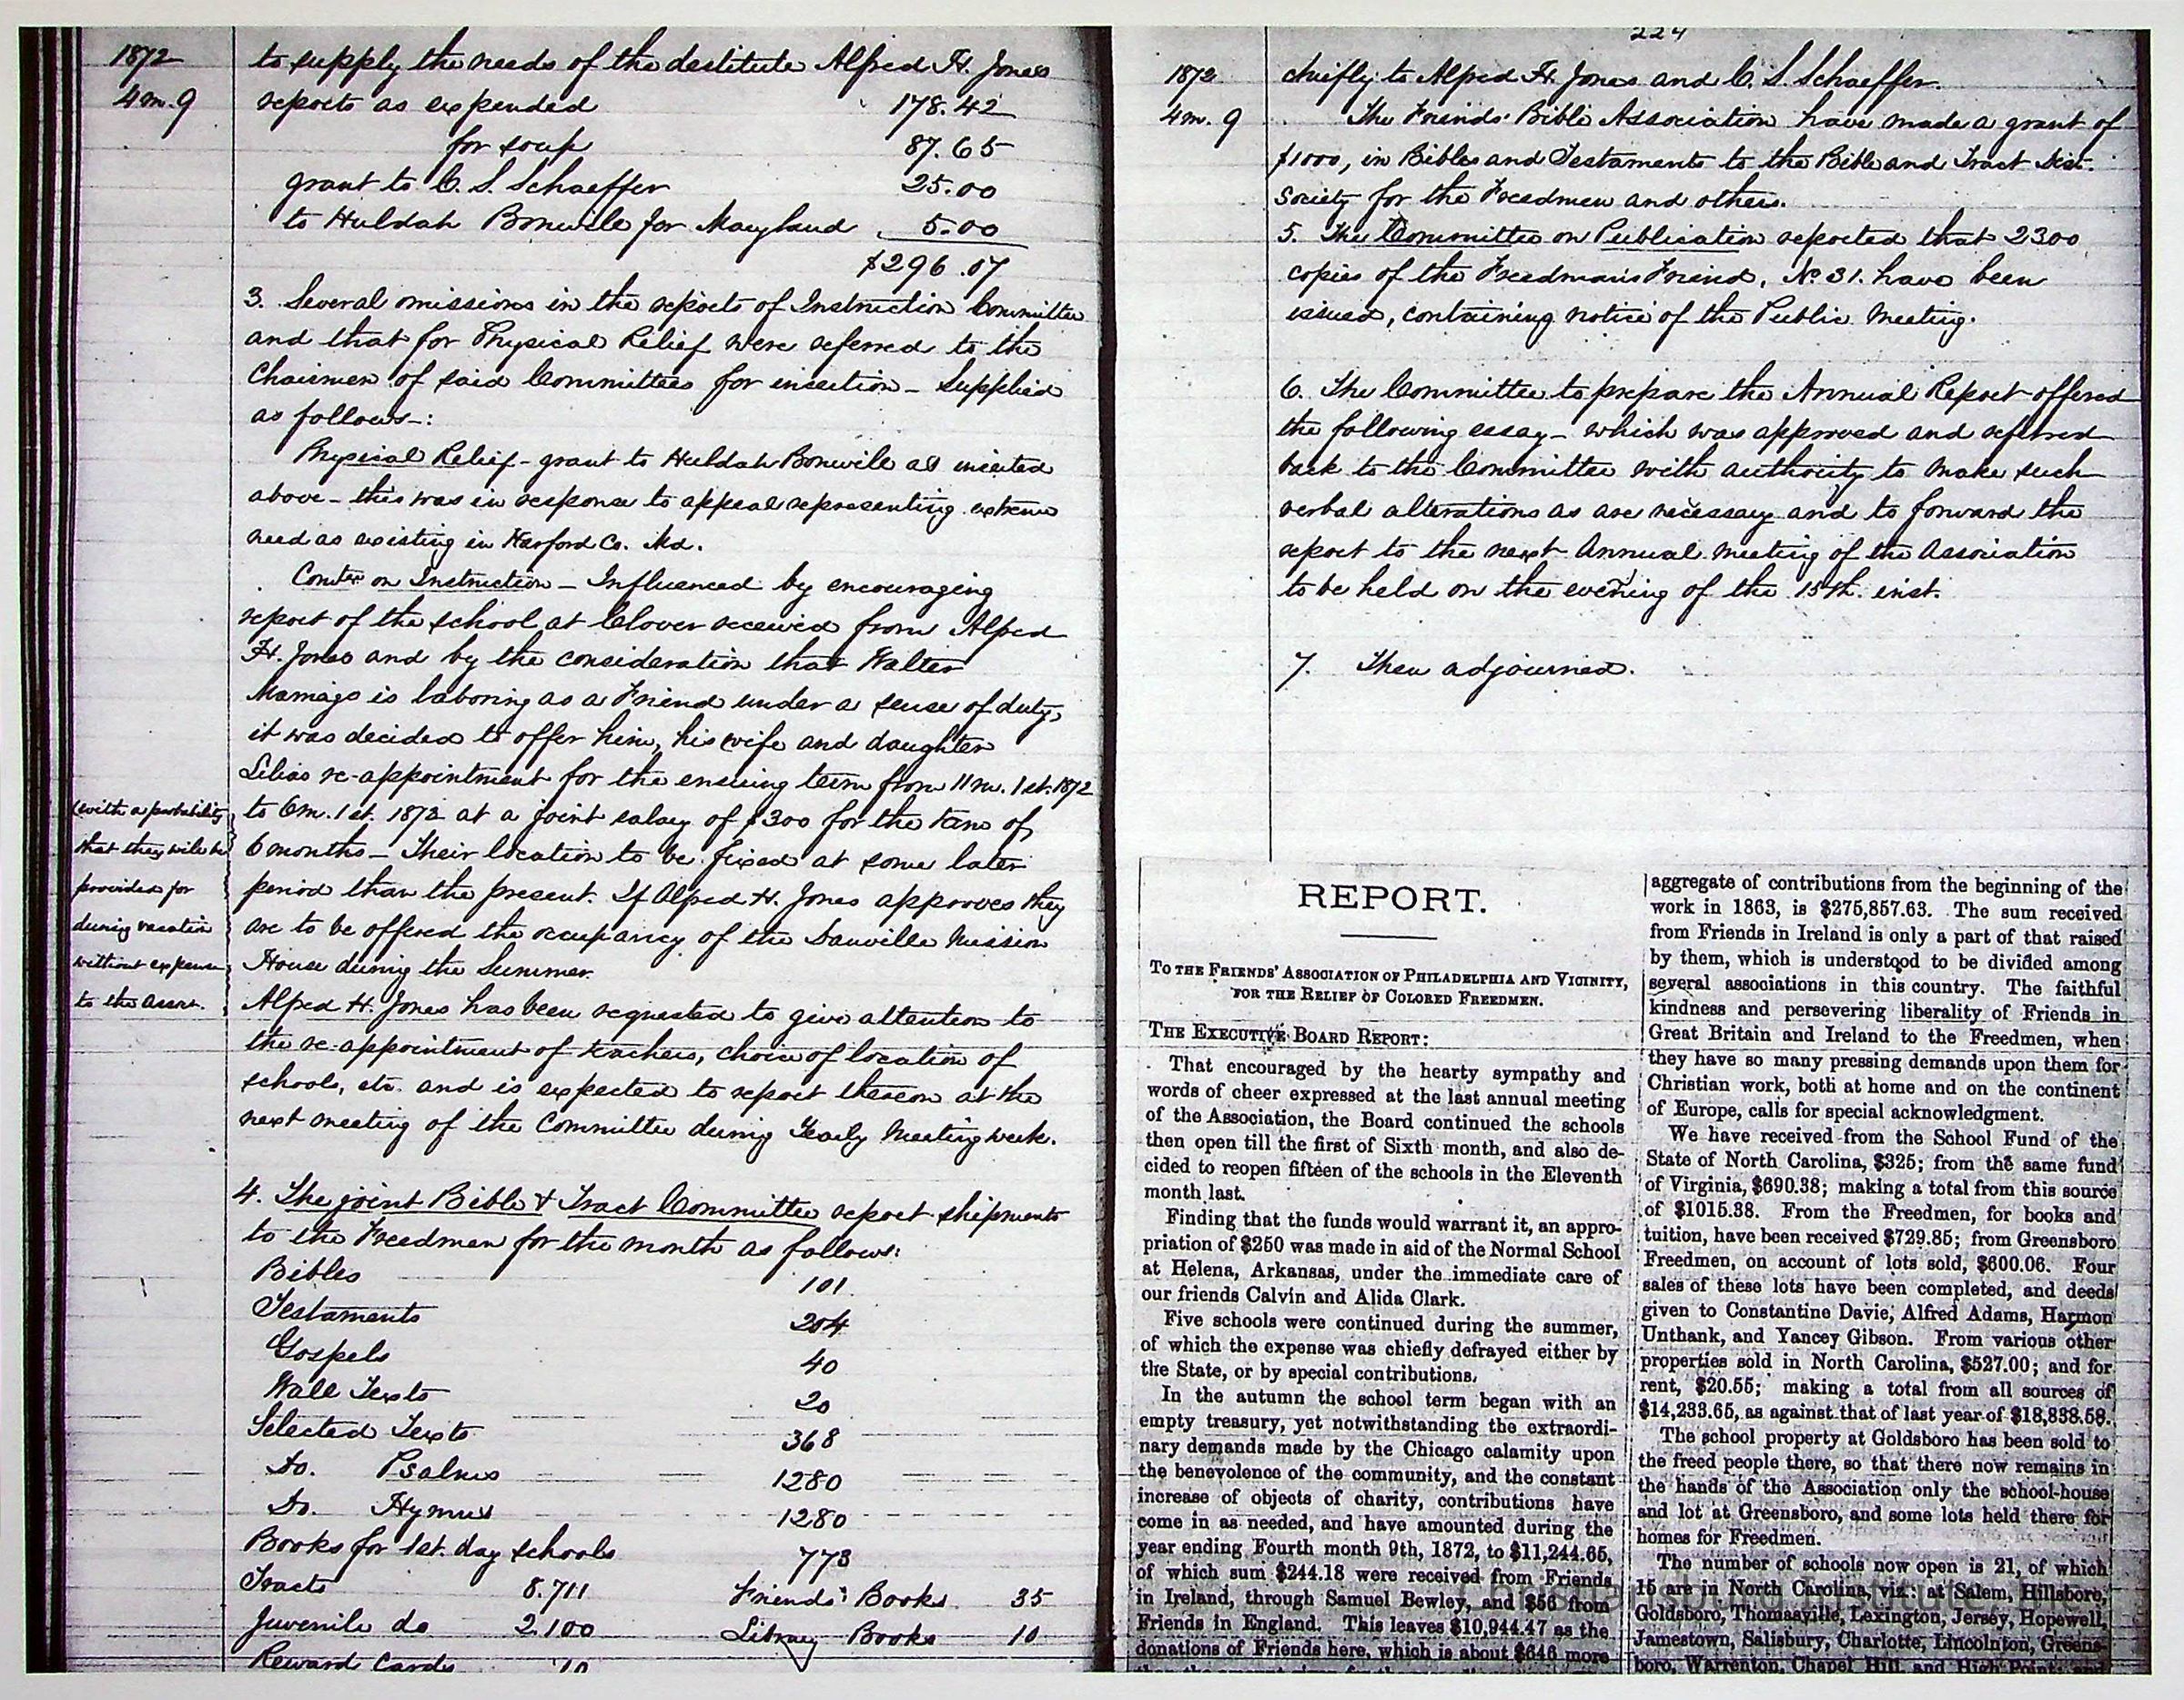 1872
4m. 9
to supply the needs of the destitute Alfred H. Jones
reports as expended 178.42
for soup 87.65
grant to C. S. Schaeffer 25.00
to Huldah Bonwile for Maryland 5.00
$296.07
3. Several omissions in the reports of Instruction Committee
and that for Physical Relief were referred to the
Chairmen of said Committees for insertion - Supplied
as follows-:
Physical Relief - grant to Huldah Bonwile as inserted
above - this was in response to appeal representing extreme
need as existing in Harford Co. Md.
Comtee on Instruction - Influenced by encouraging
report of the school at Clover received from Alfred
H. Jones and by the consideration that Walter
is laboring as a Friend under a sense of duty,
it was decided to offer him, his wife and daughter
Lilias re-appointment for the ensuing term from 11m. 1st. 1872
to 6m. 1st. 1873 at a joint salary of $300 for the term of
6 months - Their location to be fixed at some later
period than the present. If Alfred H. Jones approves they
are to be offered the occupancy of the Danville Mission
House during the Summer.
(with a probability
that they will be
provided for
during vacation
without expense
to the Assn.
Alfred H. Jones has been requested to give attention to
the re-appointment of teachers, choice of location of
schools, etc. and is expected to report thereon at the
next meeting of the Committee during Yearly Meeting week.
4. The joint Bible & Tract Committee report shipments
to the Freedmen for the month as follows:
Bibles 101
Testaments 204
Gospels 40
Wall Texts 20
Selected Texts 368
Do. Psalms 1280
Do. Hymns 1280
Books for 1st. day schools 773
Tracts 8.711 Friends' Books 35
Juvenile do 2100 Library Books 10
Reward Cards 10
224
1872
4m. 9
chiefly to Alfred H. Jones and C. S. Schaeffer.
The Friends' Bible Association have made a grant of
$1000, in Bibles and Testaments to the Bible and Tract Dist.
Society for the Freedmen and others.
5. The Committee on Publication reported that 2300
copies of the Freedman's Friend, No. 31. have been
issued, containing notice of the Public Meeting.
6. The Committee to prepare the Annual Report offered
the following essay - which was approved and referred
back to the Committee with authority to make such
verbal alterations as are necessary and to forward the
report to the next Annual Meeting of the Association
to be held on the evening of the 15th. inst.
7. Then adjourned.
REPORT.
TO THE FRIENDS' ASSOCIATION OF PHILADELPHIA AND VICINITY,
FOR THE RELIEF OF COLORED FREEDMEN.
THE EXECUTIVE BOARD REPORT:
That encouraged by the hearty sympathy and
words of cheer expressed at the last annual meeting
of the Association, the Board continued the schools
then open till the first of Sixth month, and also de-
cided to reopen fifteen of the schools in the Eleventh
month last.
Finding that the funds would warrant it, an appro-
priation of $250 was made in aid of the Normal School
at Helena, Arkansas, under the immediate care of
our friends Calvin and Alida Clark.
Five schools were continued during the summer,
of which the expense was chiefly defrayed either by
the State, or by special contributions.
In the autumn the school term began with an
empty treasury, yet notwithstanding the extraordi-
nary demands made by the Chicago calamity upon
the benevolence of the community, and the constant
increase of objects of charity, contributions have
come in as needed, and have amounted during the
year ending Fourth month 9th, 1872, to $11,244.65,
of which sum $244.18 were received from Friends
in Ireland, through Samuel Bewley, and $56 from
Friends in England. This leaves $10,944.47 as the
donations of Friends here, which is about $646 more
aggregate of contributions from the beginning of the
work in 1863, is $275,857.63. The sum received
from Friends in Ireland is only a part of that raised
by them, which is understood to be divided among
several associations in this country. The faithful
kindness and persevering liberality of Friends in
Great Britain and Ireland to the Freedmen, when
they have so many pressing demands upon them for
Christian work, both at home and on the continent
of Europe, calls for special acknowledgment.
We have received from the School Fund of the
State of North Carolina, $325; from the same fund
of Virginia, $690.38; making a total from this source
of $1015.38. From the Freedmen, for books and
tuition, have been received $729.85; from Greensboro
Freedmen, on account of lots sold, $600.06. Four
sales of these lots have been completed, and deeds
given to Constantine Davie, Alfred Adams, Harmon
Unthank, and Yancey Gibson. From various other
properties sold in North Carolina, $527.00; and for
rent, $20.55; making a total from all sources of
$14,233.65, as against that of last year of $18,838.58.
The school property at Goldsboro has been sold to
the freed people there, so that there now remains in
the hands of the Association only the school-house
and lot at Greensboro, and some lots held there for
homes for Freedmen.
The number of schools now open is 21, of which
15 are in North Carolina, viz.: at Salem, Hillsboro,
Goldsboro, Thomasville, Lexington, Jersey, Hopewell,
Jamestown, Salisbury, Charlotte, Lincolnton, Greens-
boro, Warrenton, Chapel Hill, and High Point; and
Christiansburg Institute